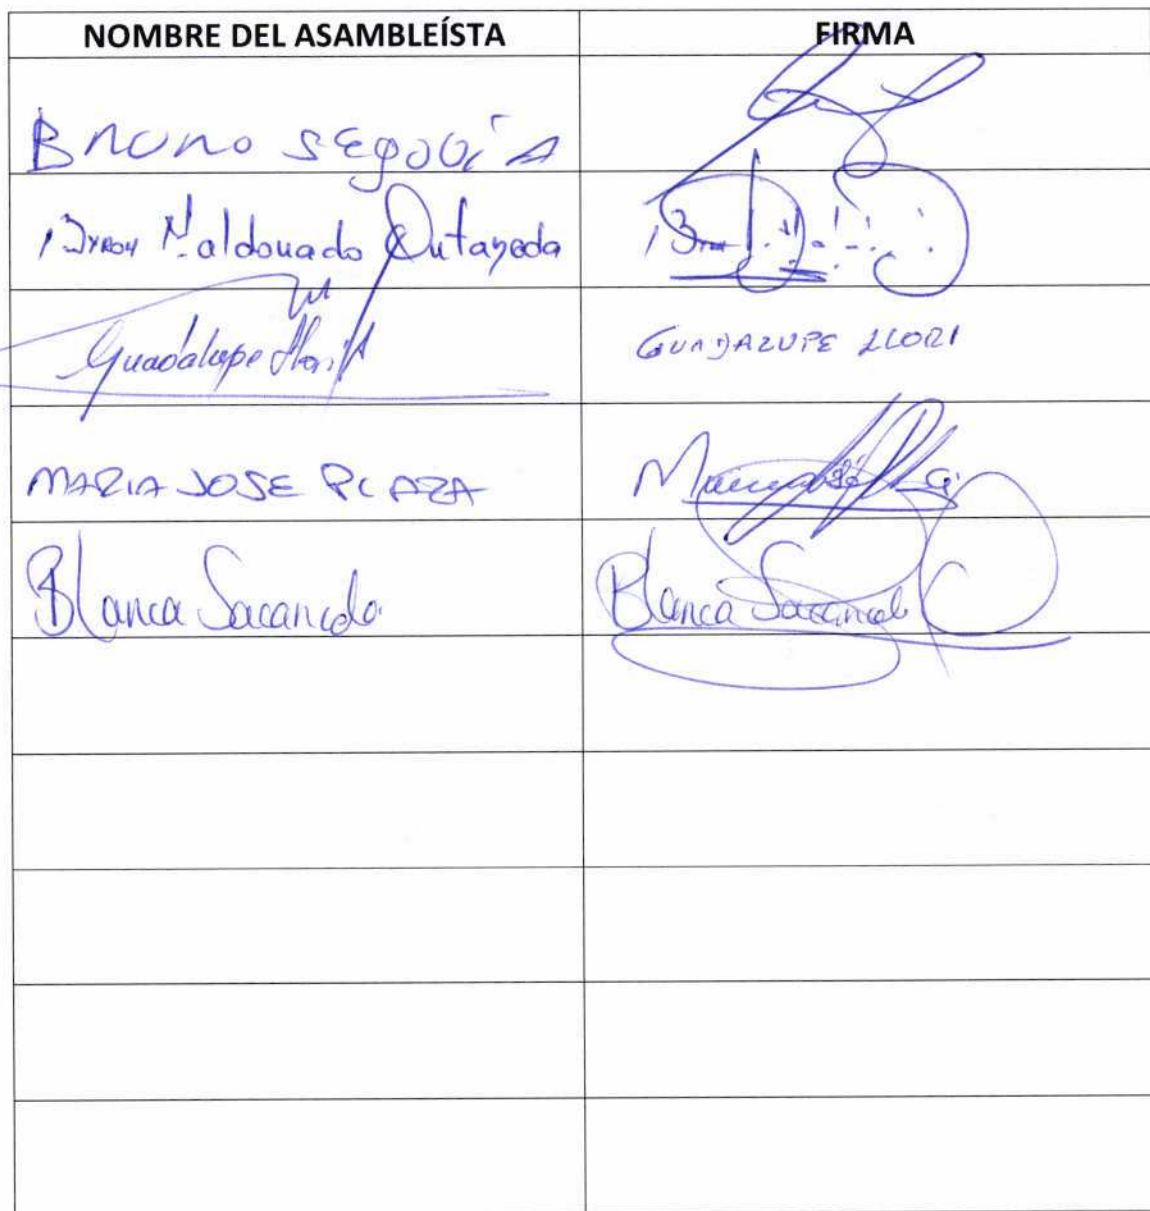 NOMBRE DEL ASAMBLEÍSTA FIRMA
Bruno Segovia
Byron Maldonado Ontaneda
Guadalupe Llori GUADALUPE LLORI
MARIA JOSE PLAZA
Blanca Sacancela Blanca Sacancela